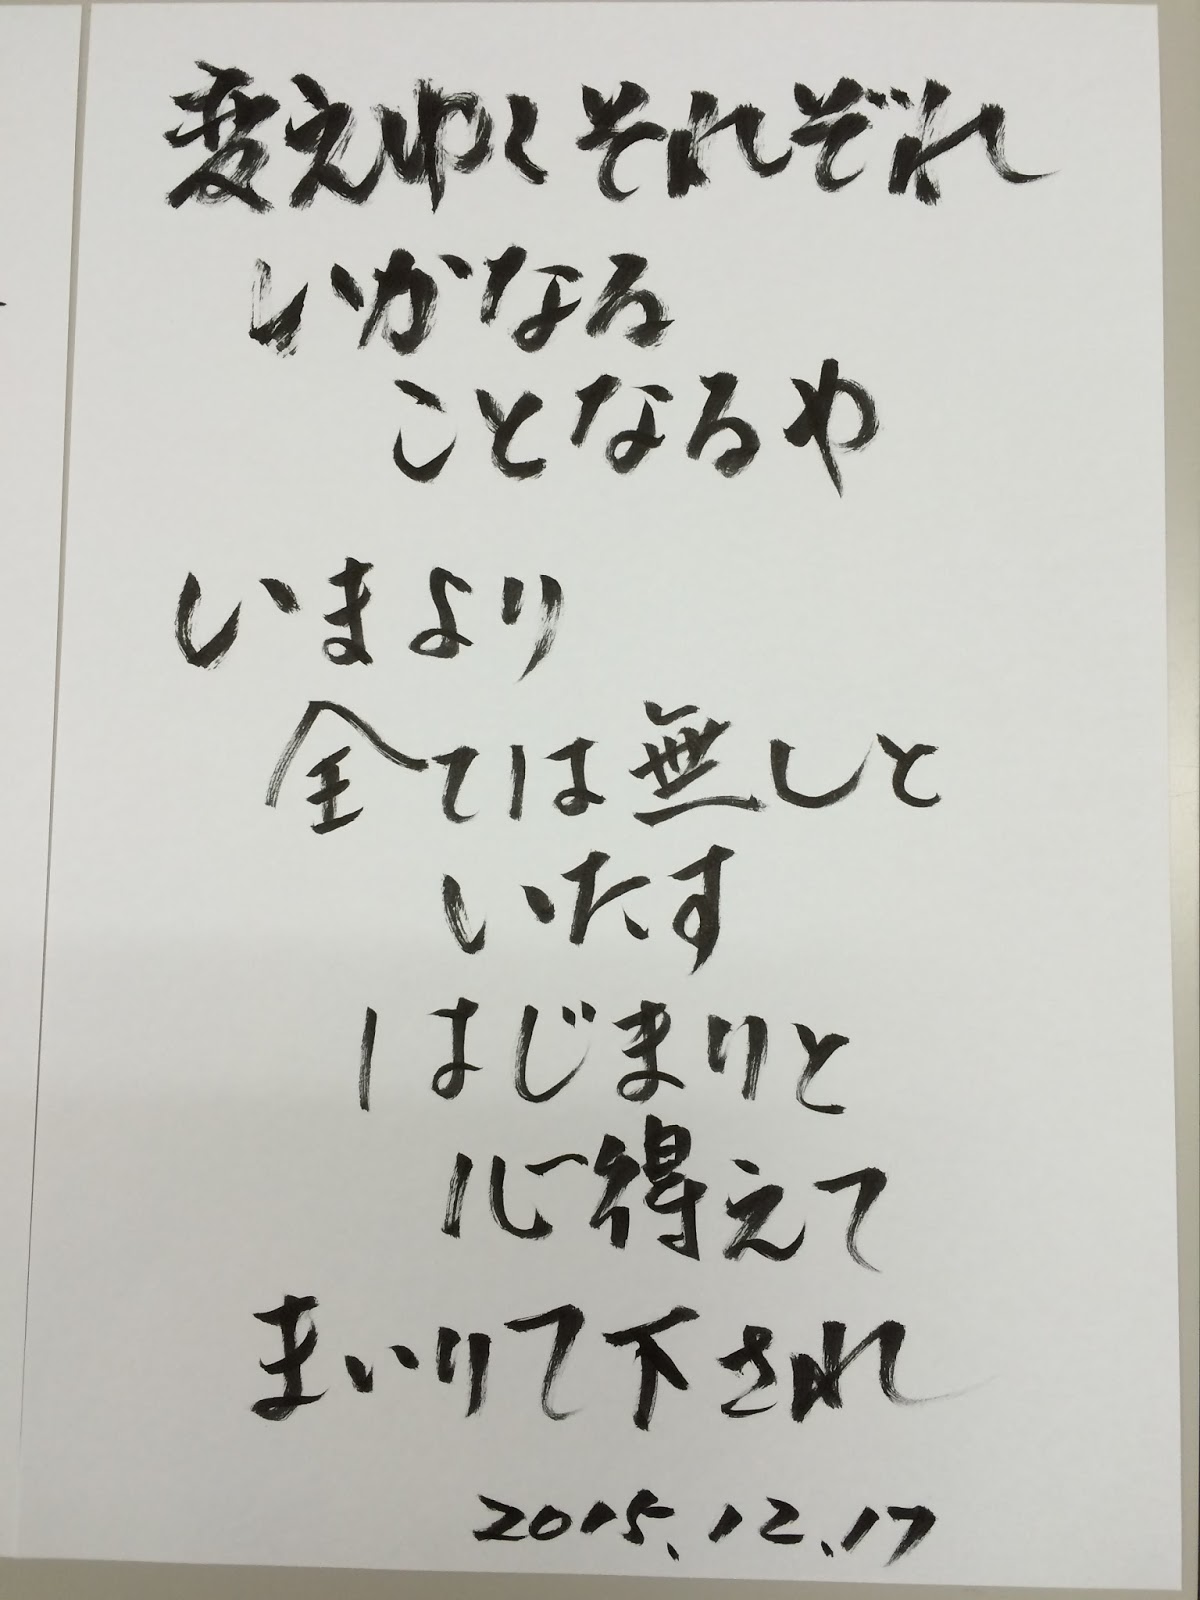 変えゆくそれぞれ
いかなる
ことなるや
いまより
全ては無しと
いたす
はじまりと
心得えて
まいりて下され
2015.12.17